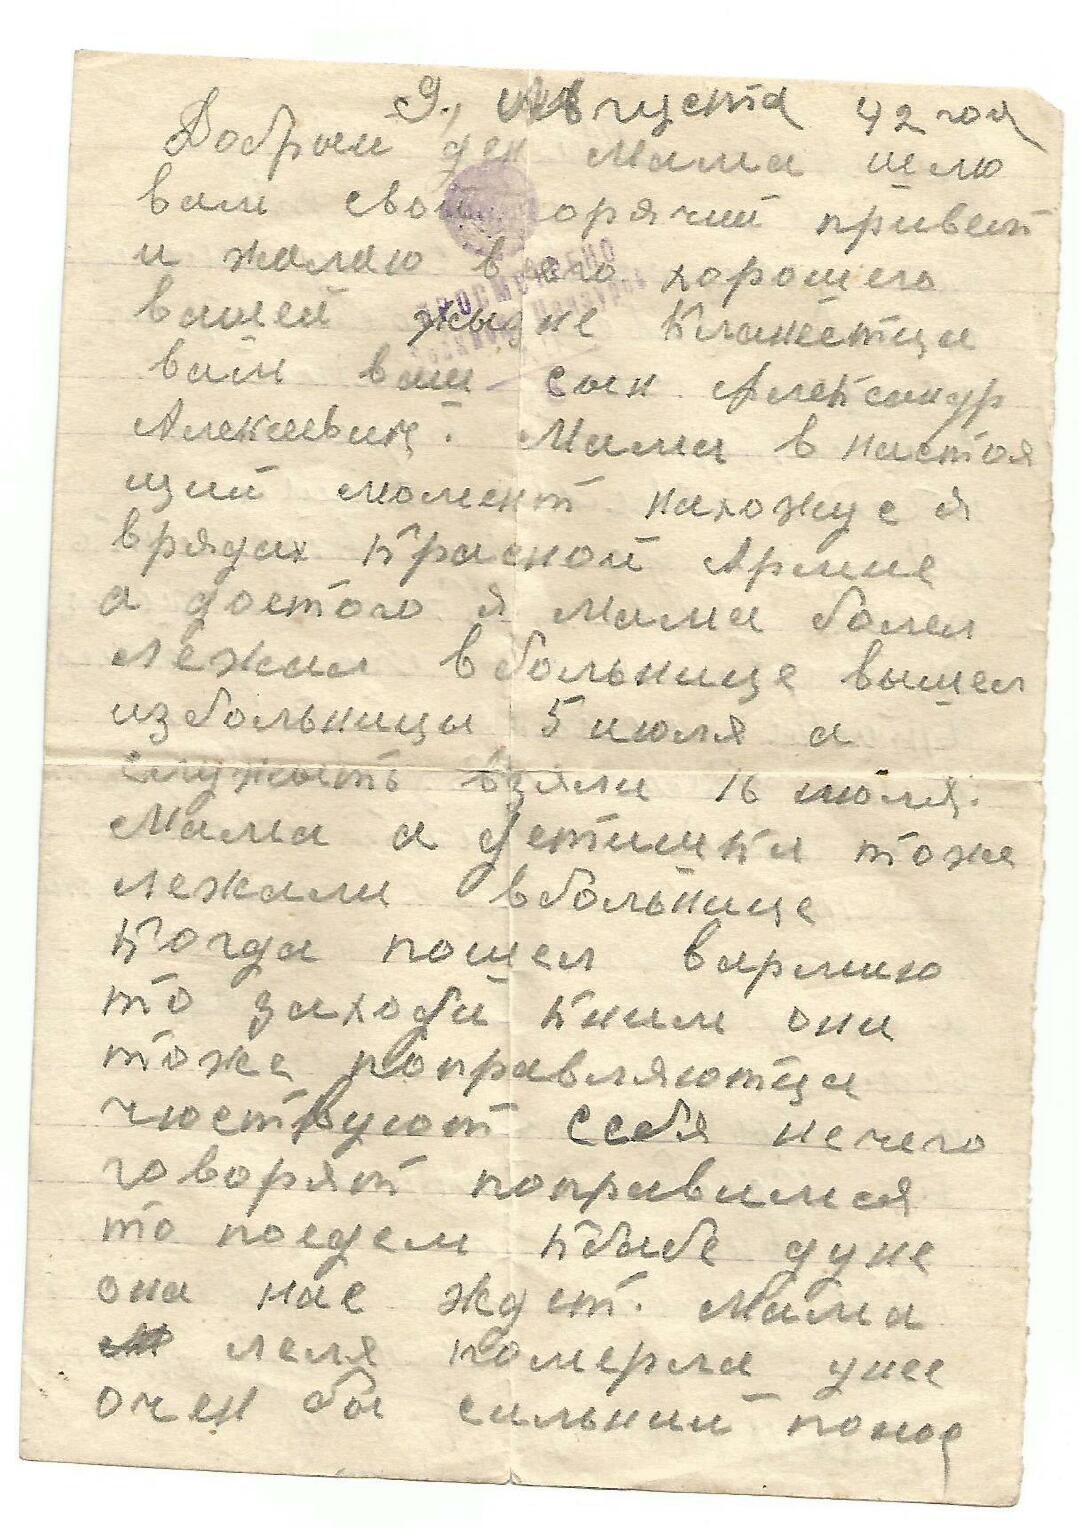 9, августа 42 год
Добрый ден Мама шлю
вам свой горячий привет
и жалаю всего хорошего
вашей жызне Кланеетца
вам ваш сын Александр
Алексеевич. Мама в настоя
щий момент нахожус я
в рядах Красной Армие
а до етого я Мама болел
лежал в больнице вышел
из больницы 5 июля а
служыть взяли 16 июля.
Мама а детишки тоже
лежали в больнице
Когда пошел в армию
то заходил к ним они
тоже поправляютца
чюствуют себя нечего
говорят поправимся
то поедем к бабе дуне
она нас ждет. Мама
леля померла у нее
очен был сильний понос
ПРОСМОТРЕНО
Военной Цензурой